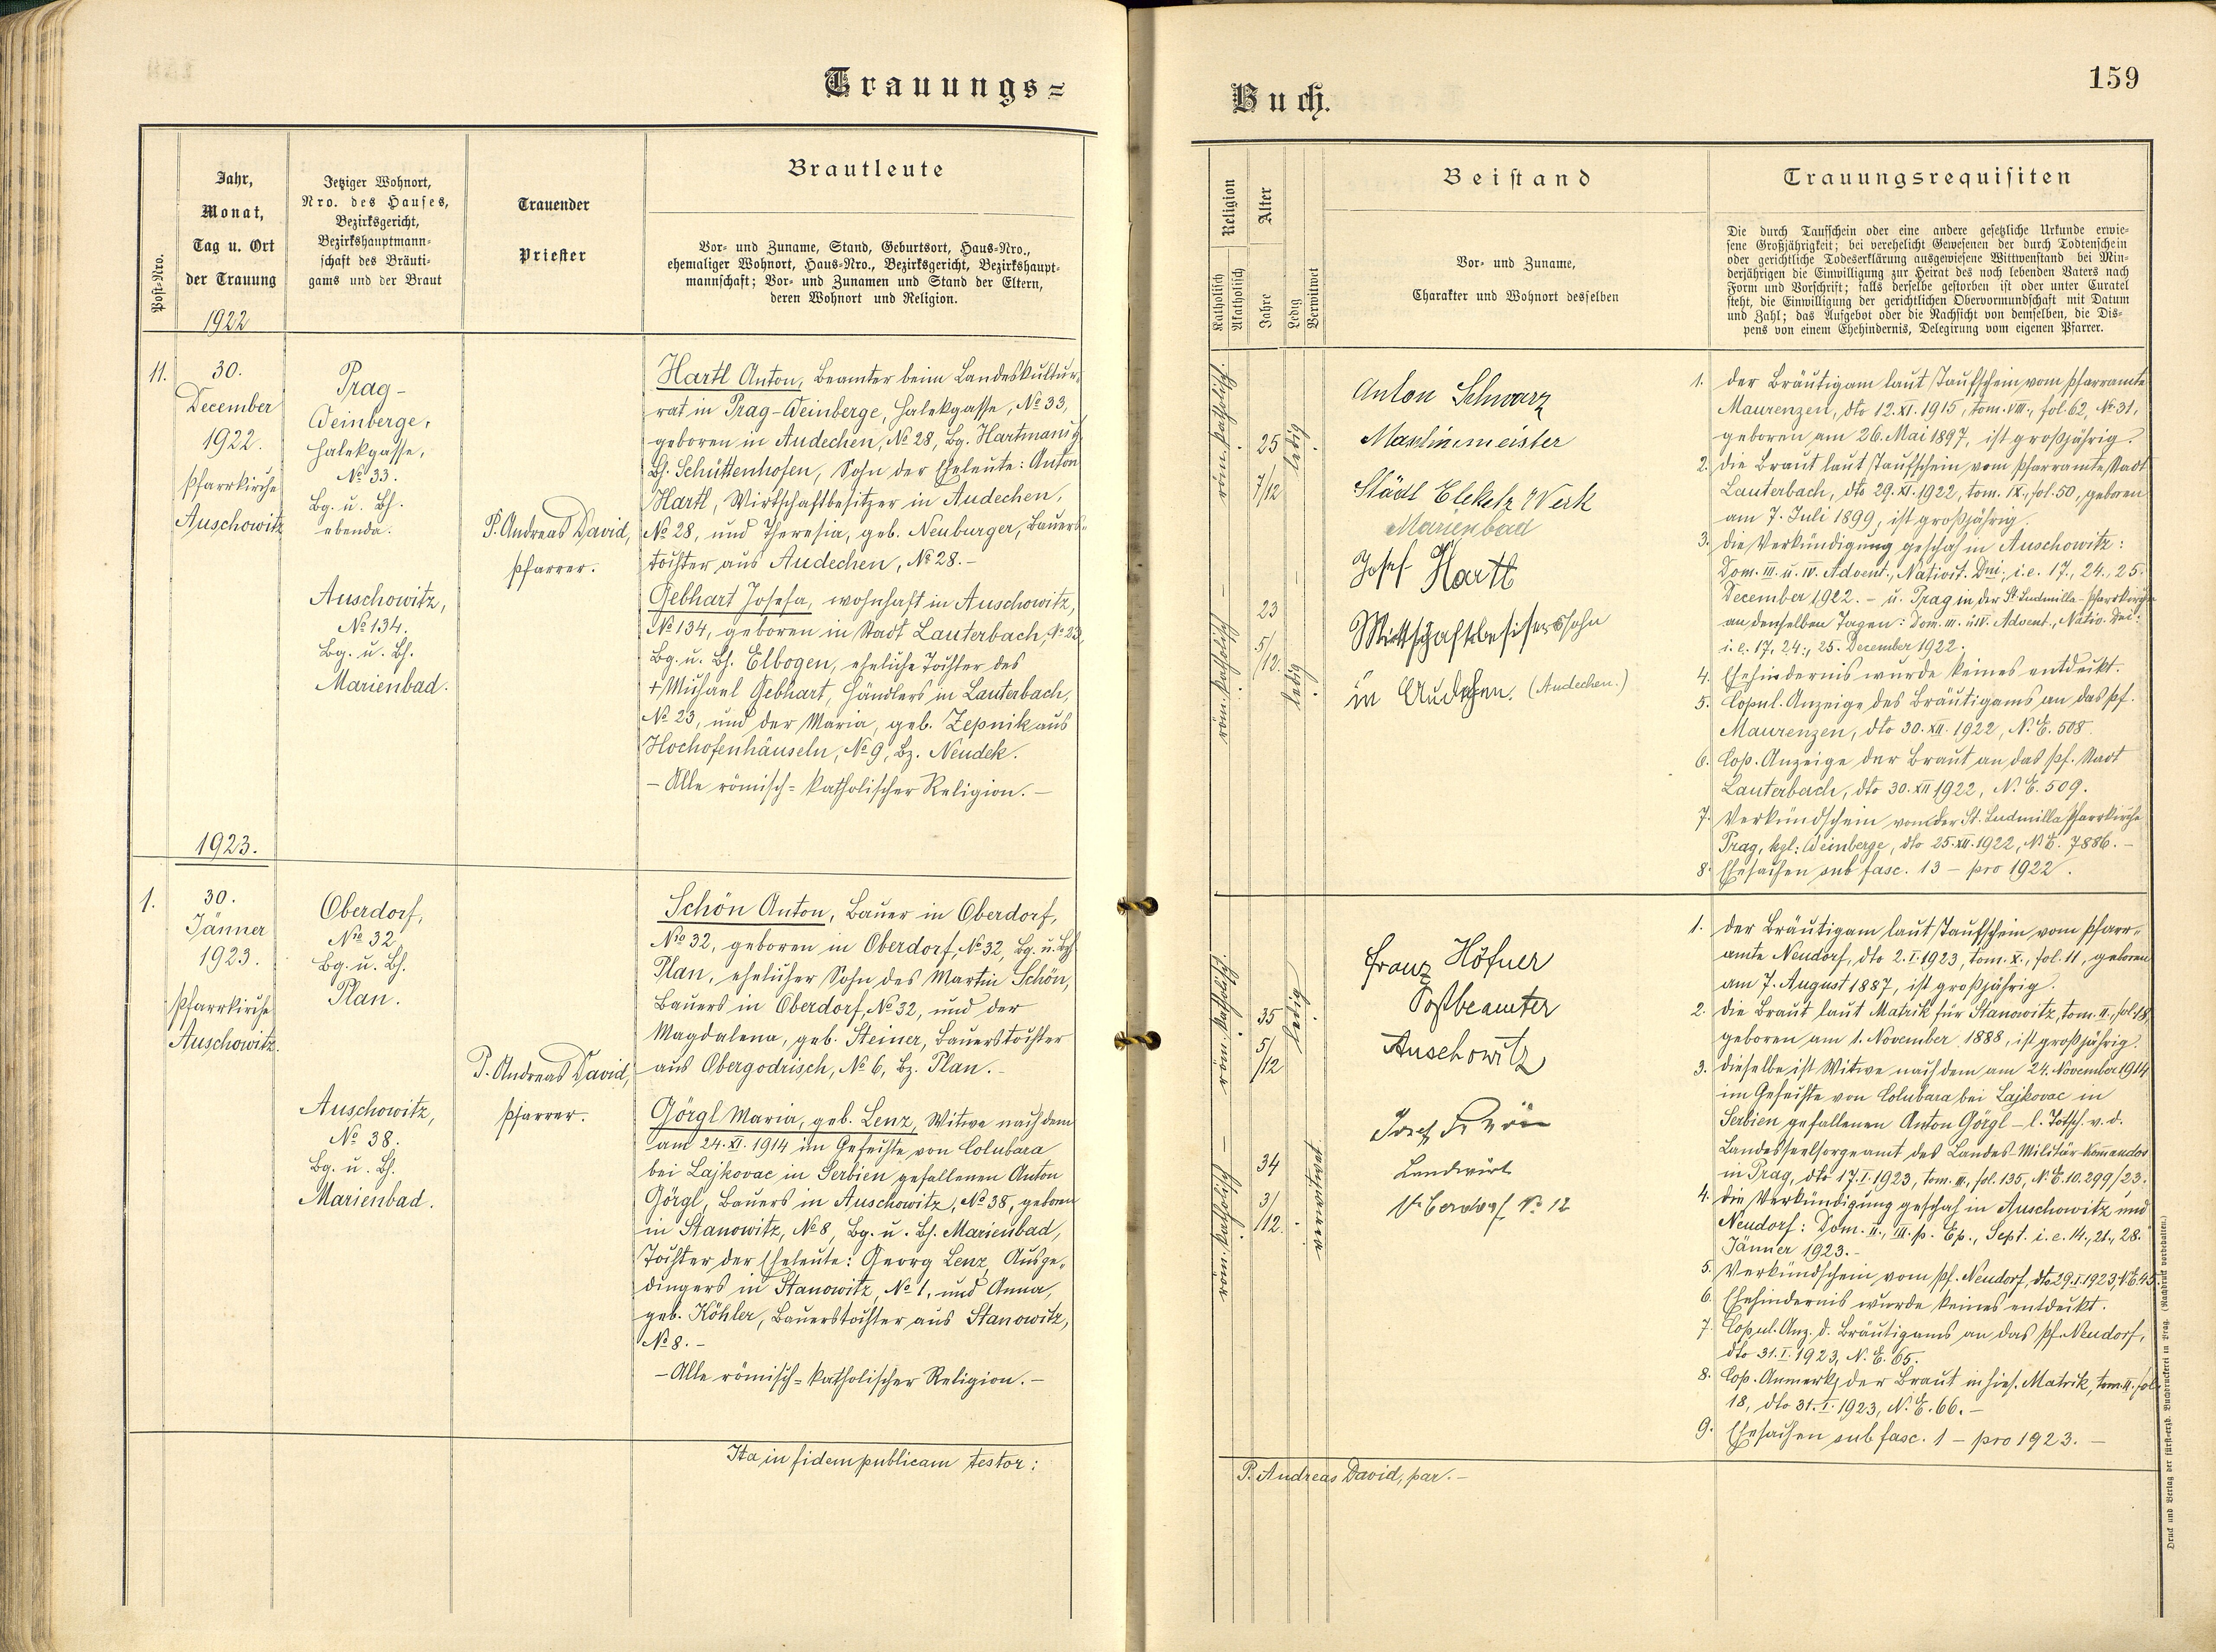 Trauungs=
Post-Nro.
Jahr,
Monat,
Tag u. Ort
der Trauung
1922
Jetziger Wohnort,
Nro. des Hauses,
Bezirksgericht,
Bezirkshauptmann-
schaft des Bräuti-
gams und der Braut
Trauender
Priester
Brautleute
Vor- und Zuname, Stand, Geburtsort, Haus-Nro.,
ehemaliger Wohnort, Haus-Nro., Bezirksgericht, Bezirkshaupt-
mannschaft; Vor- und Zunamen und Stand der Eltern,
deren Wohnort und Religion.
11.
30.
December
1922.
Pfarrkirche
Auschowitz
Prag-
Weinberge,
Halekgasse,
No 33.
Bg. u. Bh.
ebenda.
Auschowitz,
No 134.
Bg. u. Bh.
Marienbad.
P. Andreas David,
Pfarrer.
Hartl Anton, Beamter beim Landeskultur-
rat in Prag-Weinberge, Halekgasse, No 33,
geboren in Audechen, No 28, Bg. Hartmanitz,
Bh. Schüttenhofen, Sohn der Eheleute: Anton
Hartl, Wirtschaftbesitzer in Audechen,
No 28, und Theresia, geb. Neuburger, Bauers-
tochter aus Audechen, No 28.-
Gebhart Josefa, wohnhaft in Auschowitz,
No 134, geboren in Stadt Lauterbach, No 23,
Bg. u. Bh. Elbogen, eheliche Tochter des
+ Michael Gebhart, Händlers in Lauterbach,
No 23, und der Maria, geb. Zepnik aus
Hochofenhäuseln, No 9, Bz. Neudek.
- Alle römisch=katholischer Religion. -
1923.
1.
30.
Jänner
1923.
Pfarrkirche
Auschowitz.
Oberdorf,
No 32
Bg. u. Bh.
Plan.
Auschowitz,
No 38.
Bg. u. Bh.
Marienbad.
P. Andreas David,
Pfarrer.
Schön Anton, Bauer in Oberdorf,
No 32, geboren in Oberdorf, No 32, Bg. u. Bh.
Plan, ehelicher Sohn des Martin Schön,
Bauers in Oberdorf, No 32, und der
Magdalena, geb. Steiner, Bauerstochter
aus Obergodrisch, No 6, Bz. Plan.-
Görgl Maria, geb. Lenz, Witwe nach dem
am 24. XI. 1914 im Gefechte von Colubara
bei Lajkovac in Serbien gefallenen Anton
Görgl, Bauers in Auschowitz, No 38, geboren
in Stanowitz, No 8, Bg. u. Bh. Marienbad,
Tochter der Eheleute: Georg Lenz, Ausge-
dingers in Stanowitz, No 1, und Anna,
geb. Köhler, Bauerstochter aus Stanowitz,
No 8. -
- Alle römisch=katholischer Religion. -
Ita in fidem publicam testor:
Buch.
159
Religion
Katholisch
Akatholisch
Alter
Jahre
Ledig
Verwitwet
Beistand
Vor- und Zuname,
Charakter und Wohnort desselben
Trauungsrequisiten
Die durch Taufschein oder eine andere gesetzliche Urkunde erwie-
sene Großjährigkeit; bei verehelicht Gewesenen der durch Todtenschein
oder gerichtliche Todeserklärung ausgewiesene Wittwenstand bei Min-
derjährigen die Einwilligung zur Heirat des noch lebenden Vaters nach
Form und Vorschrift; falls derselbe gestorben ist oder unter Curatel
steht, die Einwilligung der gerichtlichen Obervormundschaft mit Datum
und Zahl; das Aufgebot oder die Nachsicht von demselben, die Dis-
pens von einem Ehehindernis, Delegirung vom eigenen Pfarrer.
röm. katholisch.
25
7/12
ledig
röm. katholisch
23
5/12.
ledig
Anton Schwarz
Maschinmeister
Städt Elektz Werk
Marienbad
Josef Hartl
Wirtschaftsbesitzerssohn
in Audechen. (Audechen.)
1. Der Bräutigam laut Taufschein vom Pfarramte
Maurenzen, dto 12. XI. 1915, tom. VIII., fol 62, No 31,
geboren am 26. Mai 1897, ist großjährig.
2. Die Braut laut Taufschein vom Pfarramte Stadt
Lauterbach, dto 29. XI. 1922, tom. IX., fol. 50, geboren
am 7. Juli 1899, ist großjährig.
3. Die Verkündigung geschah in Auschowitz:
Dom. III. u. IV. Advent., Nativit. Dni., i.e. 17., 24., 25.
December 1922. - u. Prag in der St. Ludmilla-Pfarrkirche
an denselben Tagen: Dom. III. u. IV. Advent., Nativ. Dni:
i. e. 17, 24., 25. December 1922.
4. Ehehindernis wurde keines entdeckt.
5. Copul. Anzeige des Bräutigams an das Pf.
Maurenzen, dto 30. XII. 1922, N. E. 508.
6. Cop. Anzeige der Braut an das Pf. Stadt
Lauterbach, dto 30. XII 1922, N. E. 509.
7. Verkündschein von der St. Ludmilla Pfarrkirche
Prag, kgl: Weinberge, dto 25. XII. 1922, N. E. 7886. -
8. Ehesachen sub fasc. 13 - pro 1922.
röm. katholisch.
35
5/12
ledig
röm. katholisch
34
3/12.
verwitwet
Franz Höfner
Postbeamter
Auschowitz
Josef Schön
Landwirt
Oberdorf No 12
1. Der Bräutigam laut Taufschein vom Pfarr-
amte Neudorf, dto 2. I. 1923, tom. X., fol. 11, geboren
am 7. August 1887, ist großjährig.
2. Die Braut laut Matrik für Stanowitz, tom. II., fol. 18,
geboren am 1. November 1888, ist großjährig.
3. Dieselbe ist Witwe nach dem am 24. November 1914
im Gefechte von Colubara bei Lajkovac in
Serbien gefallenen Anton Görgl - l. Totsch. v. d.
Landesseelsorgeamt des Landes-Militär-Komandos
in Prag, dto 17. I. 1923, tom. III., fol. 135, N. E. 10.299/23.
4. Die Verkündigung geschah in Auschowitz und
Neudorf: Dom. II., III. p. Ep., Sept. i. e. 14., 21., 28.
Jänner 1923.-
5. Verkündschein vom Pf. Neudorf, dto 29. I. 1923, N. E. 45.
6. Ehehindernis wurde keines entdeckt.
7. Copul. Anz. d. Bräutigams an das Pf. Neudorf,
dto 31. I. 1923, N. E. 65.
8. Cop. Anmerkg der Braut in hies. Matrik, tom. II. fol.
18, dto 31. I. 1923, N. E. 66. -
9. Ehesachen sub fasc. 1 - pro 1923. -
P. Andreas David, par. -
Druck und Verlag der fürst-erzb. Buchdruckerei in Prag. (Nachdruck vorbehalten.)